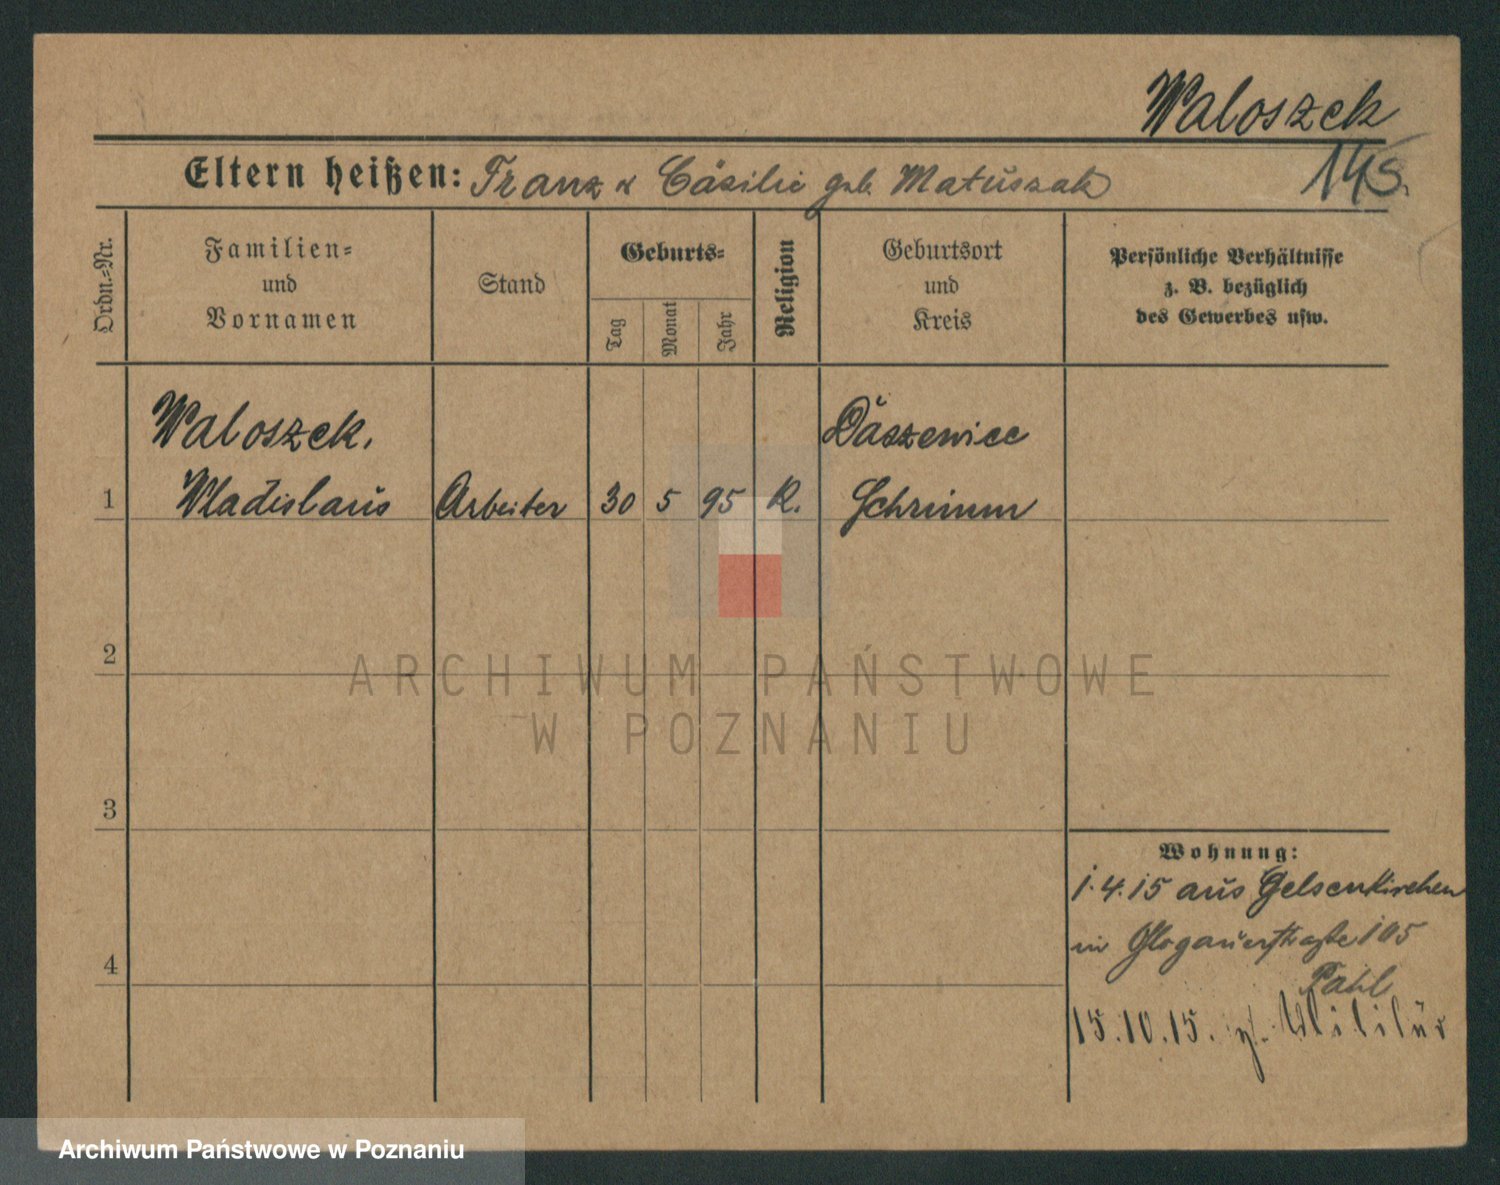 Waloszek
Eltern heißen: Franz u Cäsilie geb. Matuszak
145.
Ordn.-Nr.
Familien-
und
Vornamen
Stand
Geburts-
Tag
Monat
Jahr
Religion
Geburtsort
und
Kreis
Persönliche Verhältnisse
z. B. bezüglich
des Gewerbes usw.
Waloszek,
Daszewice
1 Wladislaus Arbeiter 30 5 95 K. Schrimm
2
ARCHIWUM PAŃSTWOWE
W POZNANIU
3
Wohnung:
1.4.15 aus Gelsenkirchen
in Glogauerstraße 105
4
Pahl
15.10.15. z. Militär
Archiwum Państwowe w Poznaniu